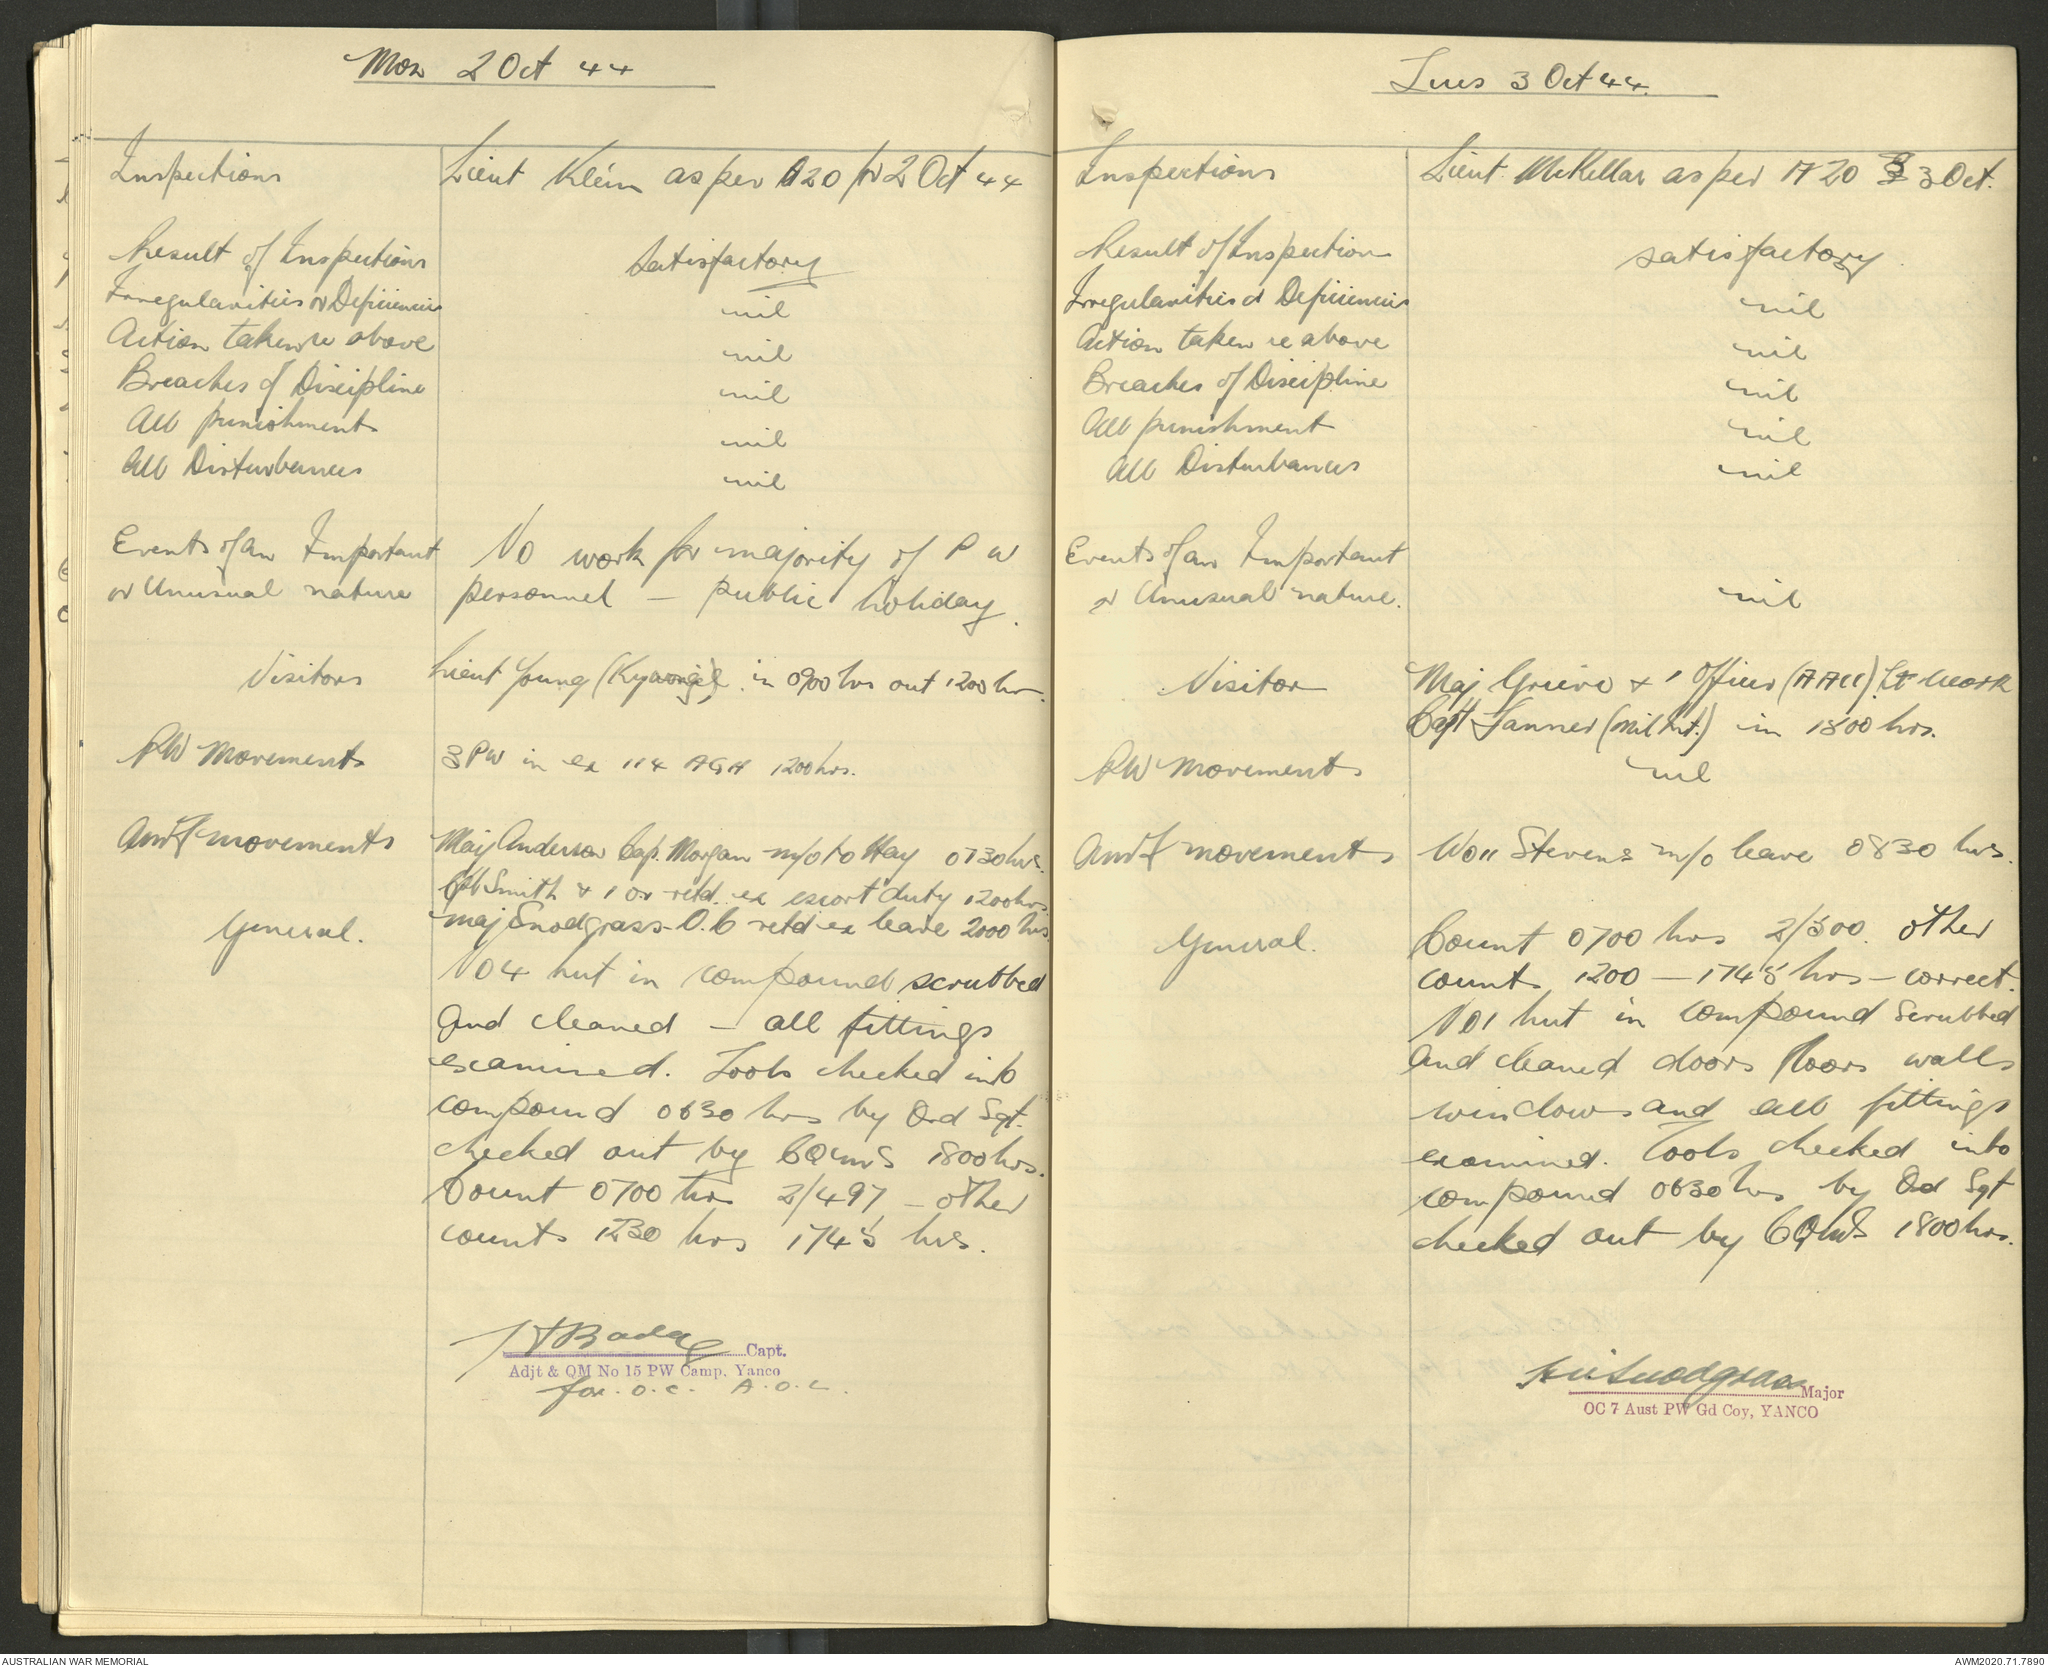 Mon 2 Oct 44
Inspections Lieut Klein as per A20 for 2 Oct 44
Result of Inspections Satisfactory
Irregularities or Deficiencies nil
Action taken re above nil
Breaches of Discipline nil
All punishments nil
All Disturbances nil
Events of an Important No work for majority of P W
or Unusual nature personnel - public holiday.
Visitors Lieut Young (Kywong) in 0900 hrs out 1200 hrs.
PW Movements 3 PW in ex 114 AGH 1200 hrs.
AMF movements Maj Anderson Capt. Morgan m/o to Hay 0730 hrs.
Cpl Smith & 1 o.r retd. ex escort duty 1200 hrs.
General. Maj Snodgrass - O.C retd ex leave 2000 hrs.
No 4 hut in compound scrubbed
and cleaned - all fittings
examined. Tools checked into
compound 0630 hrs by Ord Sgt.
checked out by CQMS 1800 hrs.
Count 0700 hrs 2/497 - other
counts 1230 hrs 1745 hrs.
Capt.
Adjt & QM No 15 PW Camp, Yanco
for. O.C. A.O.L.
Tues 3 Oct 44.
Inspections Lieut. McKellar as per A 20 3 Oct.
Result of Inspection satisfactory
Irregularities or Deficiencies nil
Action taken re above nil
Breaches of Discipline nil
All punishment nil
All Disturbances nil
Events of an Important
or Unusual nature. nil
Visitor Maj Grieve & 1 Officer (AACC) Lt Work
Capt Tanner (Mil Int.) in 1800 hrs.
PW Movements nil
AMF movements WO11 Stevens m/o leave 0830 hrs.
General. Count 0700 hrs 2/500. other
counts 1200 - 1745 hrs - correct.
No 1 hut in compound scrubbed
and cleaned doors floors walls
windows and all fittings
examined. Tools checked into
compound 0630 hrs by Ord Sgt
checked out by CQMS 1800 hrs.
Snodgrass Major
OC 7 Aust PW Gd Coy, YANCO
AUSTRALIAN WAR MEMORIAL AWM2020.71.7890